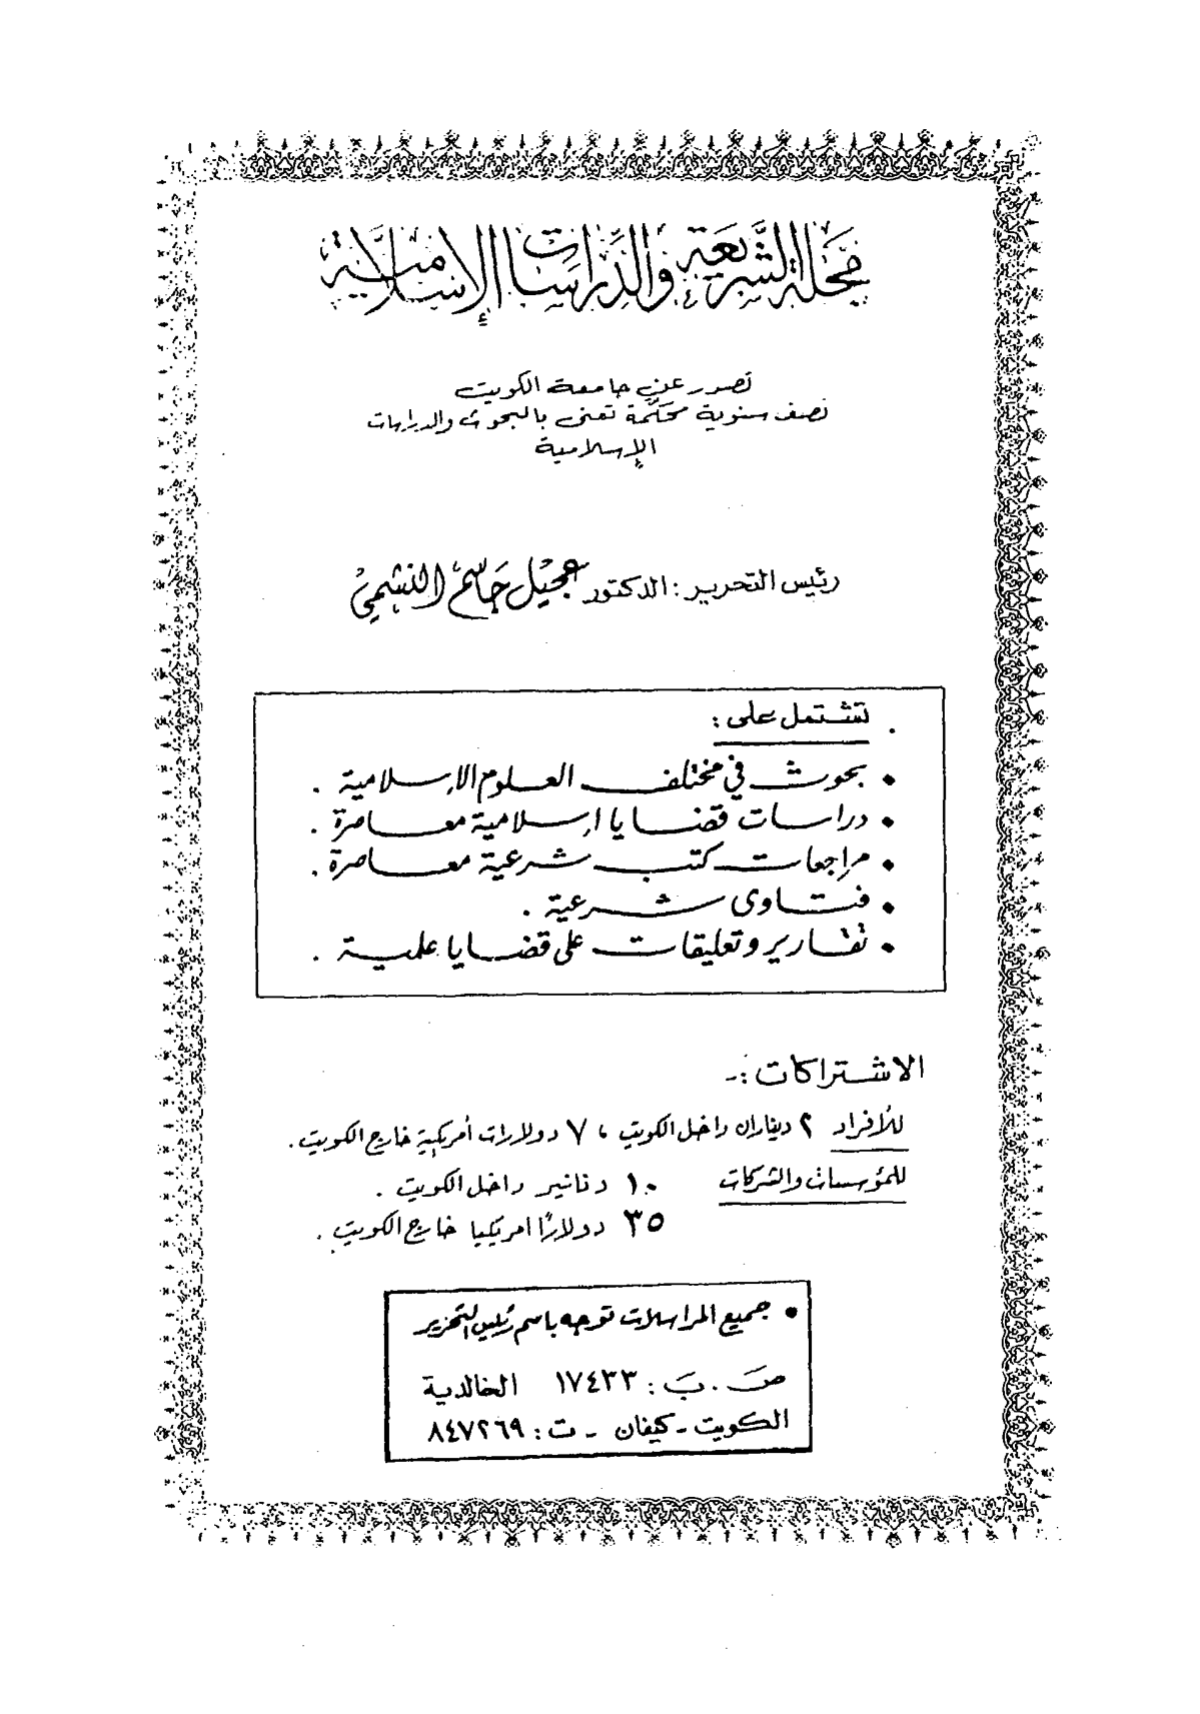 مجلة الشريعة والدراسات الإسلامية
تصدر عن جامعة الكويت
نصف سنوية محكّمة تعنى بالبحوث والدراسات
الإسلامية
رئيس التحرير : الدكتور عجيل جاسم النشمي
تشتمل على :
• بحوث في مختلف العلوم الإسلامية .
• دراسات قضايا إسلامية معاصرة .
• مراجعات كتب شرعية معاصرة .
• فتاوى شرعية .
• تقارير وتعليقات على قضايا علمية .
الاشتراكات :-
للأفراد ٢ ديناران داخل الكويت ، ٧ دولارات أمريكية خارج الكويت .
للمؤسسات والشركات ١٠ دنانير داخل الكويت .
٣٥ دولارًا امريكيا خارج الكويت .
• جميع المراسلات توجه باسم رئيس التحرير
ص . ب : ١٧٤٣٣ الخالدية
الكويت - كيفان - ت : ٨٤٧٢٦٩